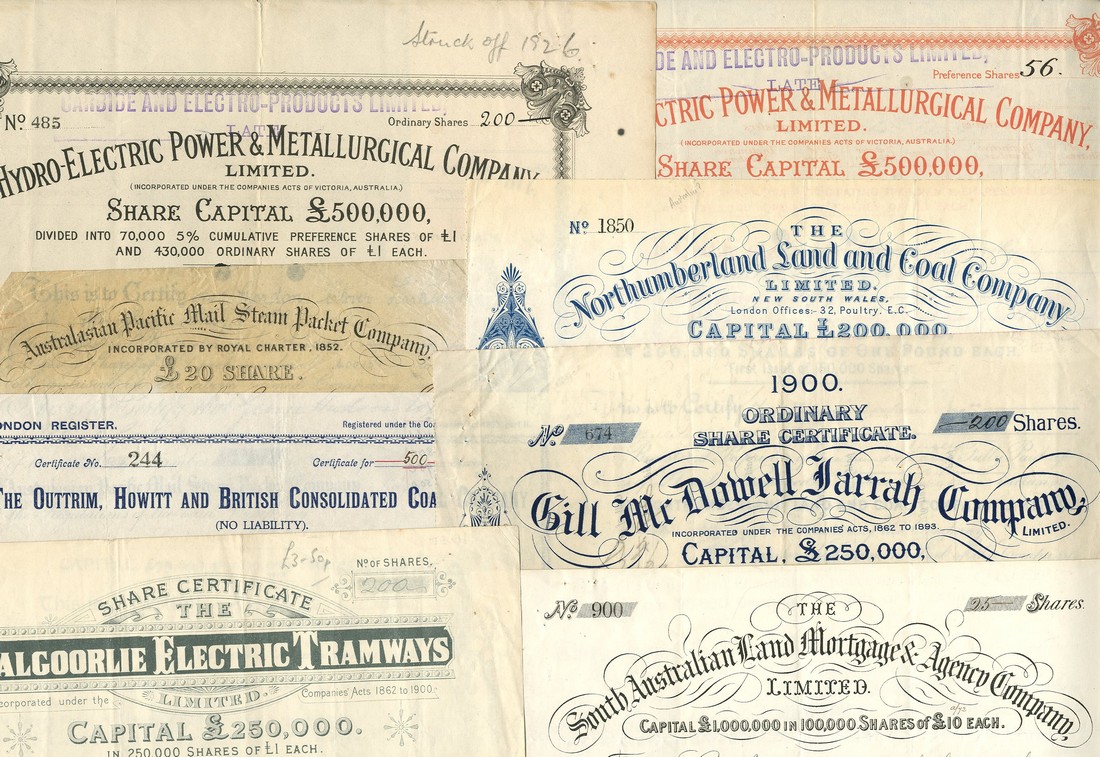 Struck off 1926.
CARBIDE AND ELECTRO-PRODUCTS LIMITED,
LATE
No. 485
Ordinary Shares 200
HYDRO-ELECTRIC POWER & METALLURGICAL COMPANY
LIMITED.
(INCORPORATED UNDER THE COMPANIES ACTS OF VICTORIA, AUSTRALIA.)
SHARE CAPITAL £500,000,
DIVIDED INTO 70,000 5% CUMULATIVE PREFERENCE SHARES OF £1
AND 430,000 ORDINARY SHARES OF £1 EACH.
DE AND ELECTRO-PRODUCTS LIMITED,
LATE
Preference Shares 56.
CTRIC POWER & METALLURGICAL COMPANY,
LIMITED.
(INCORPORATED UNDER THE COMPANIES ACTS OF VICTORIA, AUSTRALIA.)
SHARE CAPITAL £500,000,
No 1850
THE
Northumberland Land and Coal Company
LIMITED.
NEW SOUTH WALES,
London Offices:- 32, Poultry. E.C.
CAPITAL £200,000
This is to Certify
Australasian Pacific Mail Steam Packet Company.
INCORPORATED BY ROYAL CHARTER, 1852.
£20 SHARE.
IN 200,000 SHARES OF ONE POUND EACH.
1900.
ORDINARY
SHARE CERTIFICATE.
No 674
200 Shares.
Gill McDowell Jarrah Company,
LIMITED.
INCORPORATED UNDER THE COMPANIES' ACTS, 1862 TO 1893.
CAPITAL, £250,000,
ONDON REGISTER.
Registered under the Co
Certificate No. 244
Certificate for 500
THE OUTTRIM, HOWITT AND BRITISH CONSOLIDATED COA
(NO LIABILITY).
£3-50p
No OF SHARES.
200
SHARE CERTIFICATE
THE
ALGOORLIE ELECTRIC TRAMWAYS
LIMITED.
corporated under the
Companies Acts 1862 to 1900.
CAPITAL £250,000.
IN 250,000 SHARES OF £1 EACH.
No. 900
25 Shares.
THE
South Australian Land Mortgage & Agency Company,
LIMITED.
CAPITAL £1,000,000 IN 100,000 SHARES OF £10 EACH.